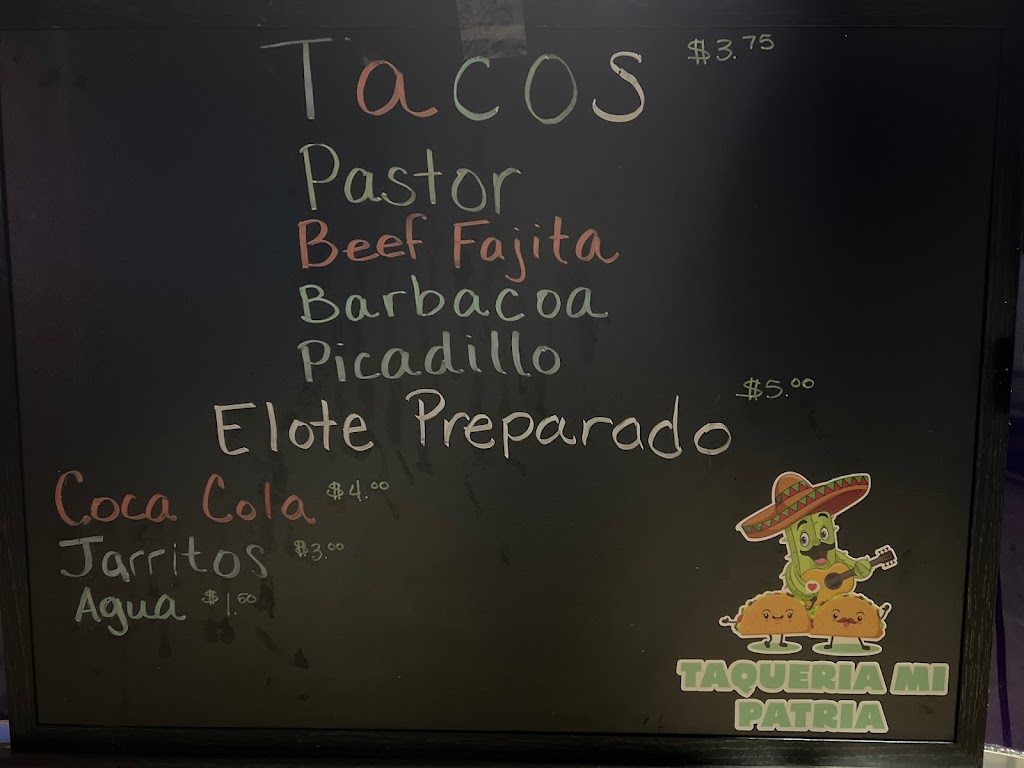 Tacos $3.75
Pastor
Beef Fajita
Barbacoa
Picadillo
Elote Preparado $5.00
Coca Cola $4.00
Jarritos $3.00
Agua $1.50
TAQUERIA MI
PATRIA